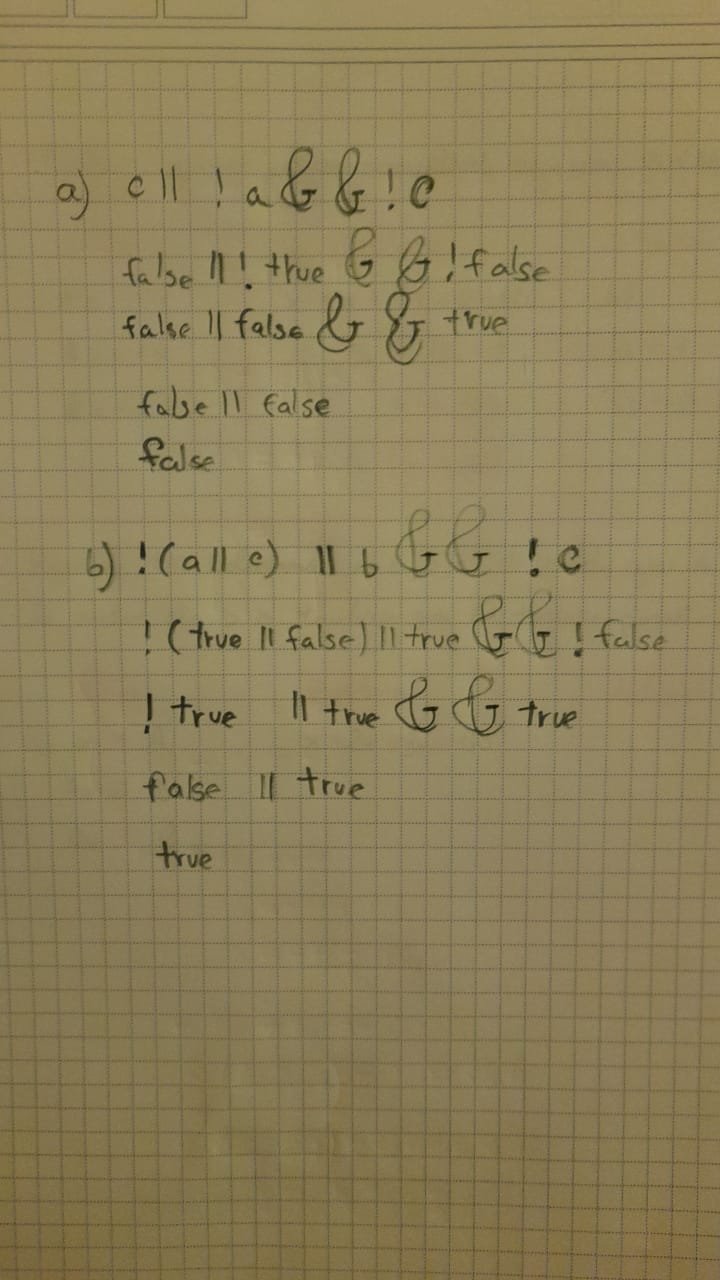 a) c || ! a && ! c
false || ! true && ! false
false || false && true
false || false
false
b) ! (a || c) || b && ! c
! (true || false) || true && ! false
! true || true && true
false || true
true